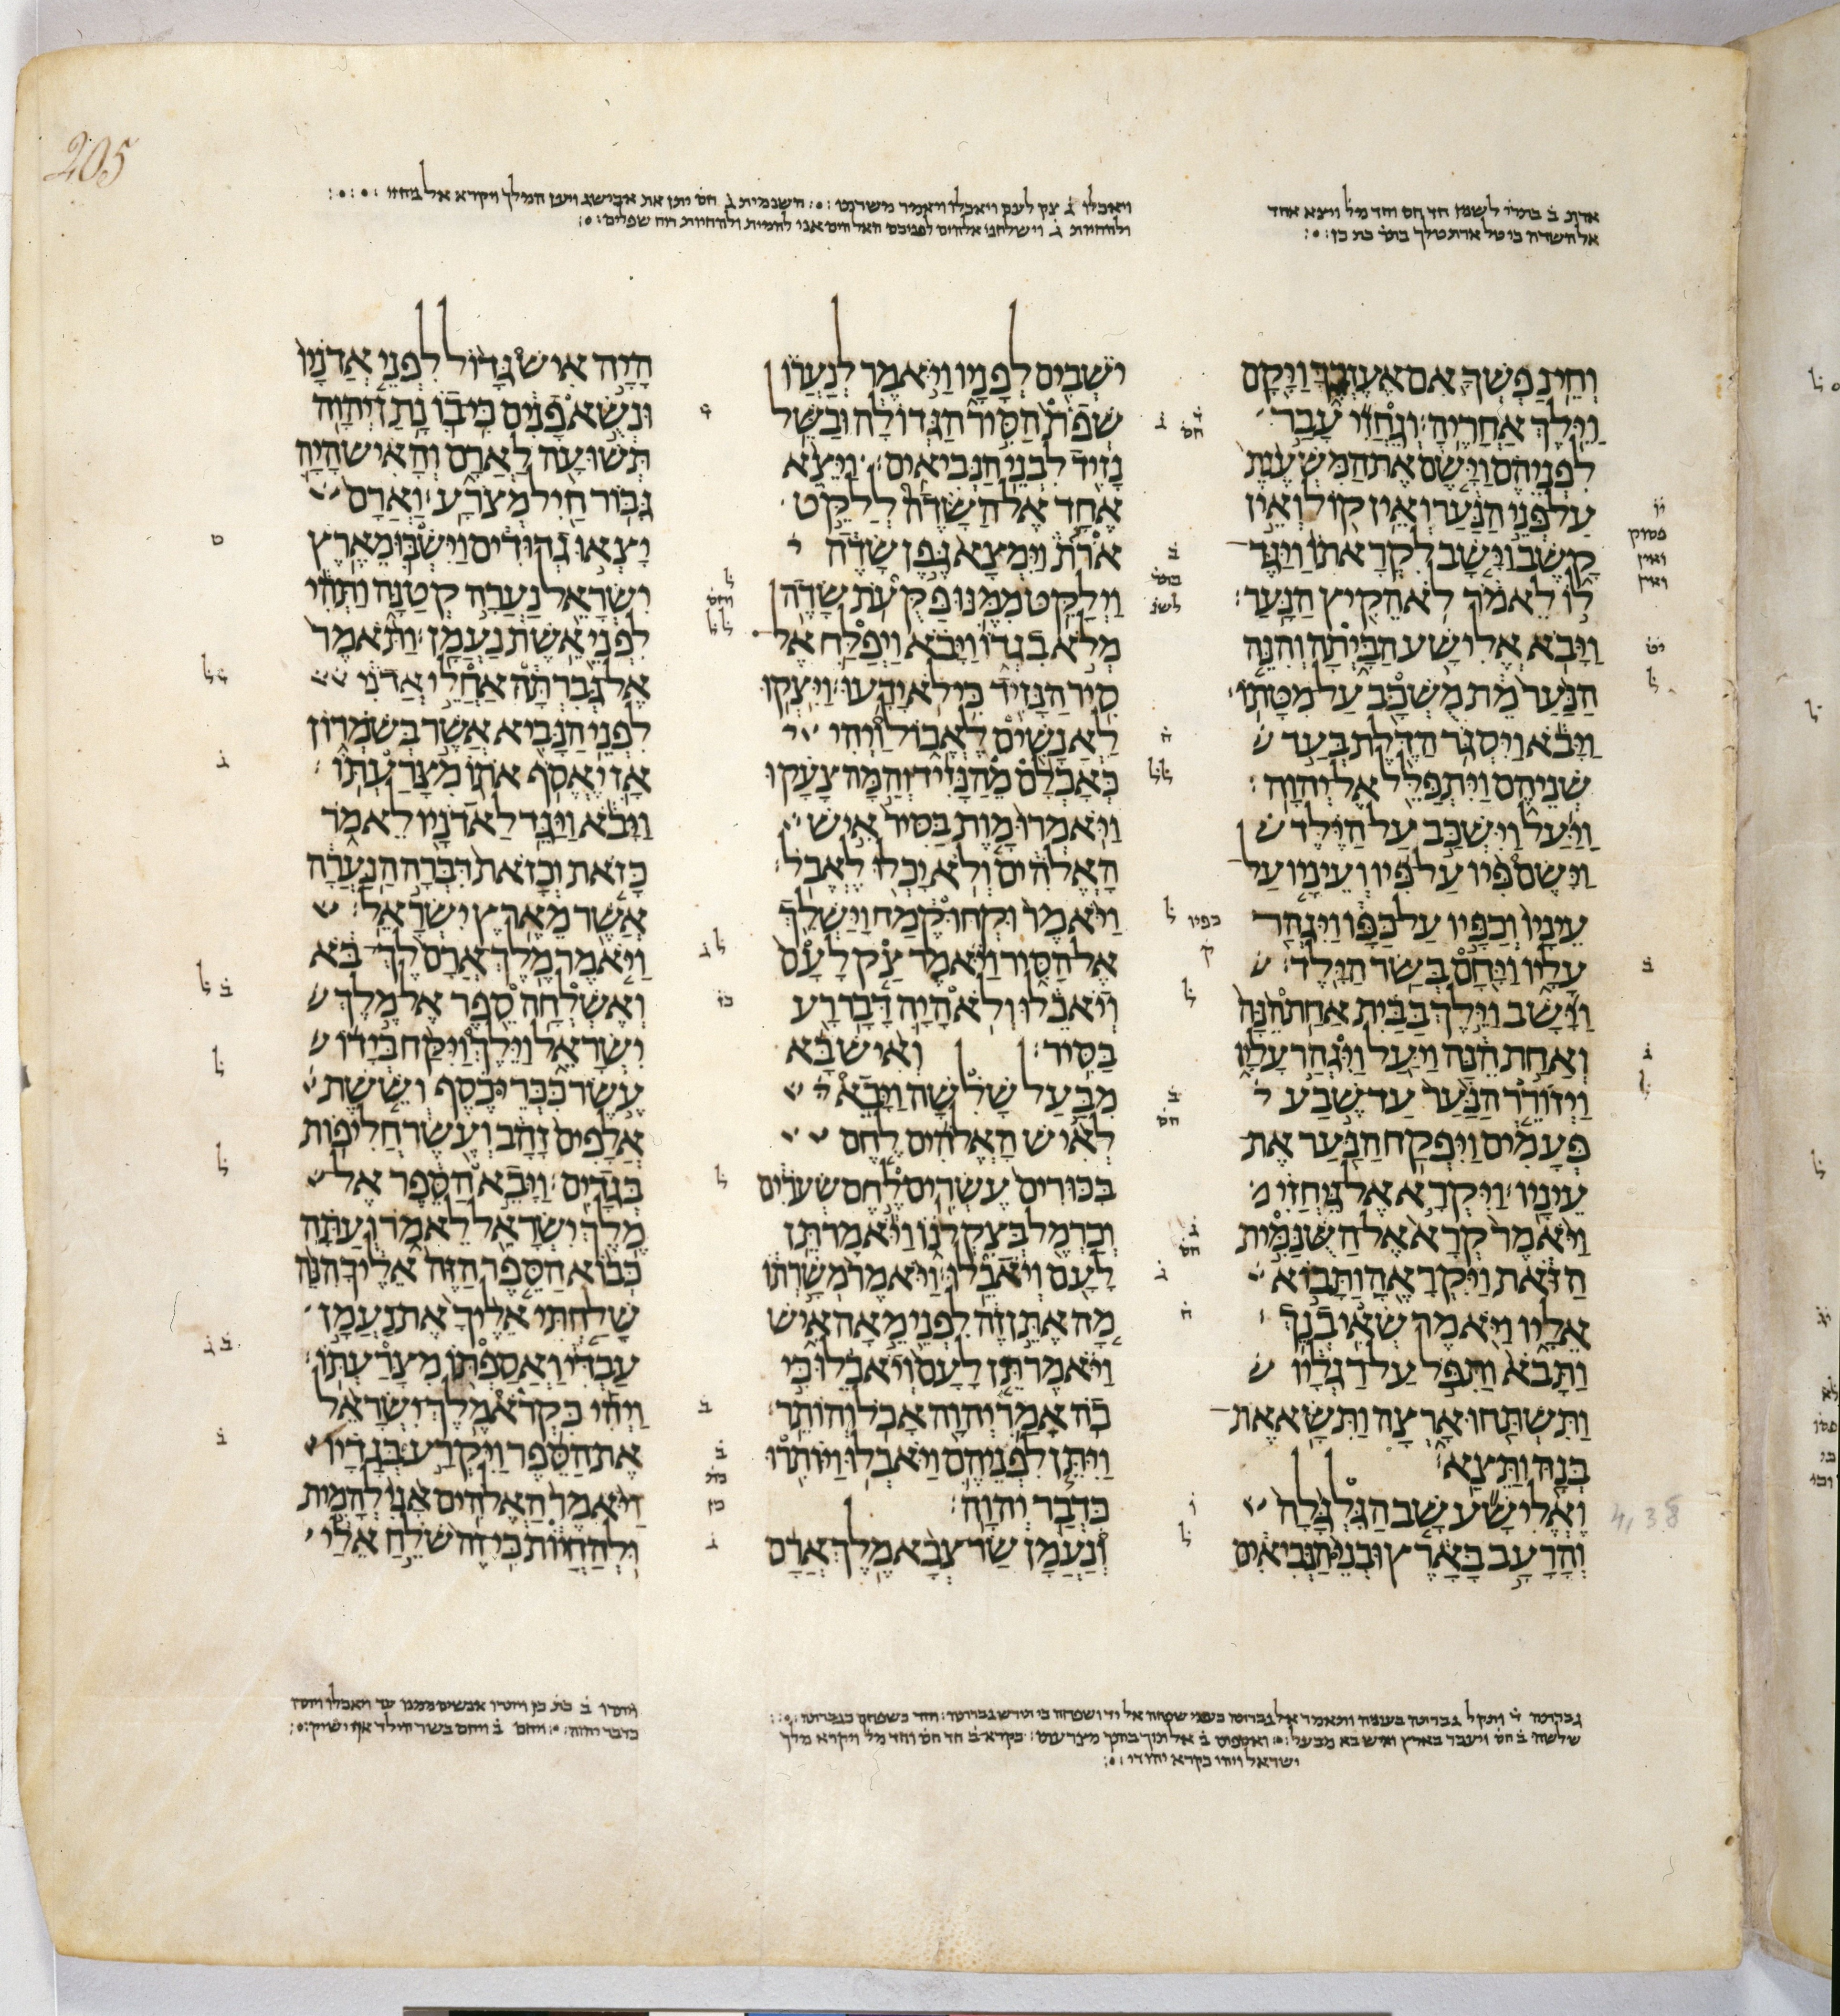 205
ויאכלו ג צק לעם ויאכלו ויאמר משרתו השנמית ג חס יתן את אבישג ויען המלך ויקרא אל גחזי
ולהחיות ג וישלחני אלהים לפניכם האלהים אני להמית ולהחיות רוח שפלים
ארת ב בתרי לשנין חד חס וחד מל ויצא אחד
אל השדה כי טל ארת טלך
וחי נפשך אם אעזבך ויקם
וילך אחריה׃ וגחזי עבר
לפניהם וישם את המשענת
על פני הנער ואין קול ואין
קשב וישב לקראתו ויגד
לו לאמר לא הקיץ הנער׃
ויבא אלישע הביתה והנה
הנער מת משכב על מטתו׃
ויבא ויסגר הדלת בעד
שניהם ויתפלל אל יהוה׃
ויעל וישכב על הילד
וישם פיו על פיו ועיניו על
עיניו וכפיו על כפו ויגהר
עליו ויחם בשר הילד׃
וישב וילך בבית אחת הנה
ואחת הנה ויעל ויגהר עליו
ויזורר הנער עד שבע
פעמים ויפקח הנער את
עיניו׃ ויקרא אל גיחזי
ויאמר קרא אל השנמית
הזאת ויקראה ותבוא
אליו ויאמר שאי בנך׃
ותבא ותפל על רגליו
ותשתחו ארצה ותשא את
בנה ותצא׃
ואלישע שב הגלגלה
והרעב בארץ ובני הנביאים
ישבים לפניו ויאמר לנערו
שפת הסיר הגדולה ובשל
נזיד לבני הנביאים׃ ויצא
אחד אל השדה ללקט
ארת וימצא גפן שדה
וילקט ממנו פקעת שדה
מלא בגדו ויבא ויפלח אל
סיר הנזיד כי לא ידעו׃ ויצקו
לאנשים לאכול ויהי
כאכלם מהנזיד והמה צעקו
ויאמרו מות בסיר איש
האלהים ולא יכלו לאכל׃
ויאמר וקחו קמח וישלך
אל הסיר ויאמר צק לעם
ויאכלו ולא היה דבר רע
בסיר׃ ואיש בא
מבעל שלשה ויבא
לאיש האלהים לחם
בכורים עשרים לחם שערים
וכרמל בצקלנו ויאמר תן
לעם ויאכלו׃ ויאמר משרתו
מה אתן זה לפני מאה איש
ויאמר תן לעם ויאכלו כי
כה אמר יהוה אכל והותר׃
ויתן לפניהם ויאכלו ויותרו
כדבר יהוה׃
ונעמן שר צבא מלך ארם
היה איש גדול לפני אדניו
ונשא פנים כי בו נתן יהוה
תשועה לארם והאיש היה
גבור חיל מצרע׃ וארם
יצאו גדודים וישבו מארץ
ישראל נערה קטנה ותהי
לפני אשת נעמן׃ ותאמר
אל גברתה אחלי אדני
לפני הנביא אשר בשמרון
אז יאסף אתו מצרעתו׃
ויבא ויגד לאדניו לאמר
כזאת וכזאת דברה הנערה
אשר מארץ ישראל׃
ויאמר מלך ארם לך בא
ואשלחה ספר אל מלך
ישראל וילך ויקח בידו
עשר ככרי כסף וששת
אלפים זהב ועשר חליפות
בגדים׃ ויבא הספר אל
מלך ישראל לאמר ועתה
כבוא הספר הזה אליך הנה
שלחתי אליך את נעמן
עבדי ואספתו מצרעתו׃
ויהי כקרא מלך ישראל
את הספר ויקרע בגדיו
ויאמר האלהים אני להמית
ולהחיות כי זה שלח אלי
4,38
שלשה ב חס ויעבר בארץ ואיש בא מבעל ואספתו ב אל תוך ביתך מצרעתו כקרא ב חד חס וחד מל ויקרא מלך
ישראל ויהי כקרא יהודי
ויותרו אנשים ממנו עד ויאכלו ויתרו
כדבר יהוה ויחם ב ויחם בשר הילד אף ישיק